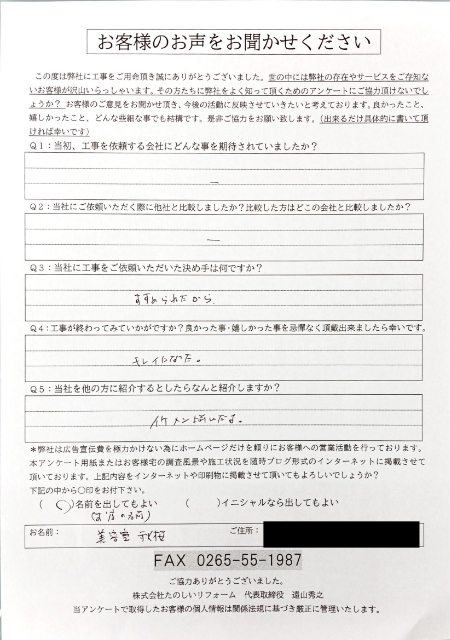 お客様のお声をお聞かせください
この度は弊社に工事をご用命頂き誠にありがとうございました。世の中には弊社の存在やサービスをご存知な
いお客様が沢山いらっしゃいます。その方たちに弊社をよく知って頂くためのアンケートにご協力頂けないでし
ょうか？ お客様のご意見をお聞かせ頂き、今後の活動に反映させていきたいと考えております。良かったこと、
嬉しかったこと、どんな些細な事でも結構です。是非ご協力をお願い致します。(出来るだけ具体的に書いて頂
ければ幸いです)
Q1：当初、工事を依頼する会社にどんな事を期待されていましたか？
ー
Q2：当社にご依頼いただく際に他社と比較しましたか？比較した方はどこの会社と比較しましたか？
ー
Q3：当社に工事をご依頼いただいた決め手は何ですか？
すすめられたから
Q4：工事が終わってみていかがですか？良かった事・嬉しかった事を忌憚なく頂戴出来ましたら幸いです。
キレイになった。
Q5：当社を他の方に紹介するとしたらなんと紹介しますか？
イケメン
＊弊社は広告宣伝費を極力かけない為にホームページだけを頼りにお客様への営業活動を行っております。
本アンケート用紙またはお客様宅の調査風景や施工状況を随時ブログ形式のインターネットに掲載させて
頂いております。上記内容をインターネットや印刷物に掲載させて頂いてもよろしいでしょうか？
下記の中から〇印をお付下さい。
( ○ )名前を出してもよい ( )イニシャルなら出してもよい
(お店の名前)
お名前： 美容室 ご住所：
FAX 0265-55-1987
ご協力ありがとうございました。
株式会社たのしいリフォーム 代表取締役 遠山秀之
当アンケートで取得したお客様の個人情報は関係法規に基づき厳正に管理いたします。